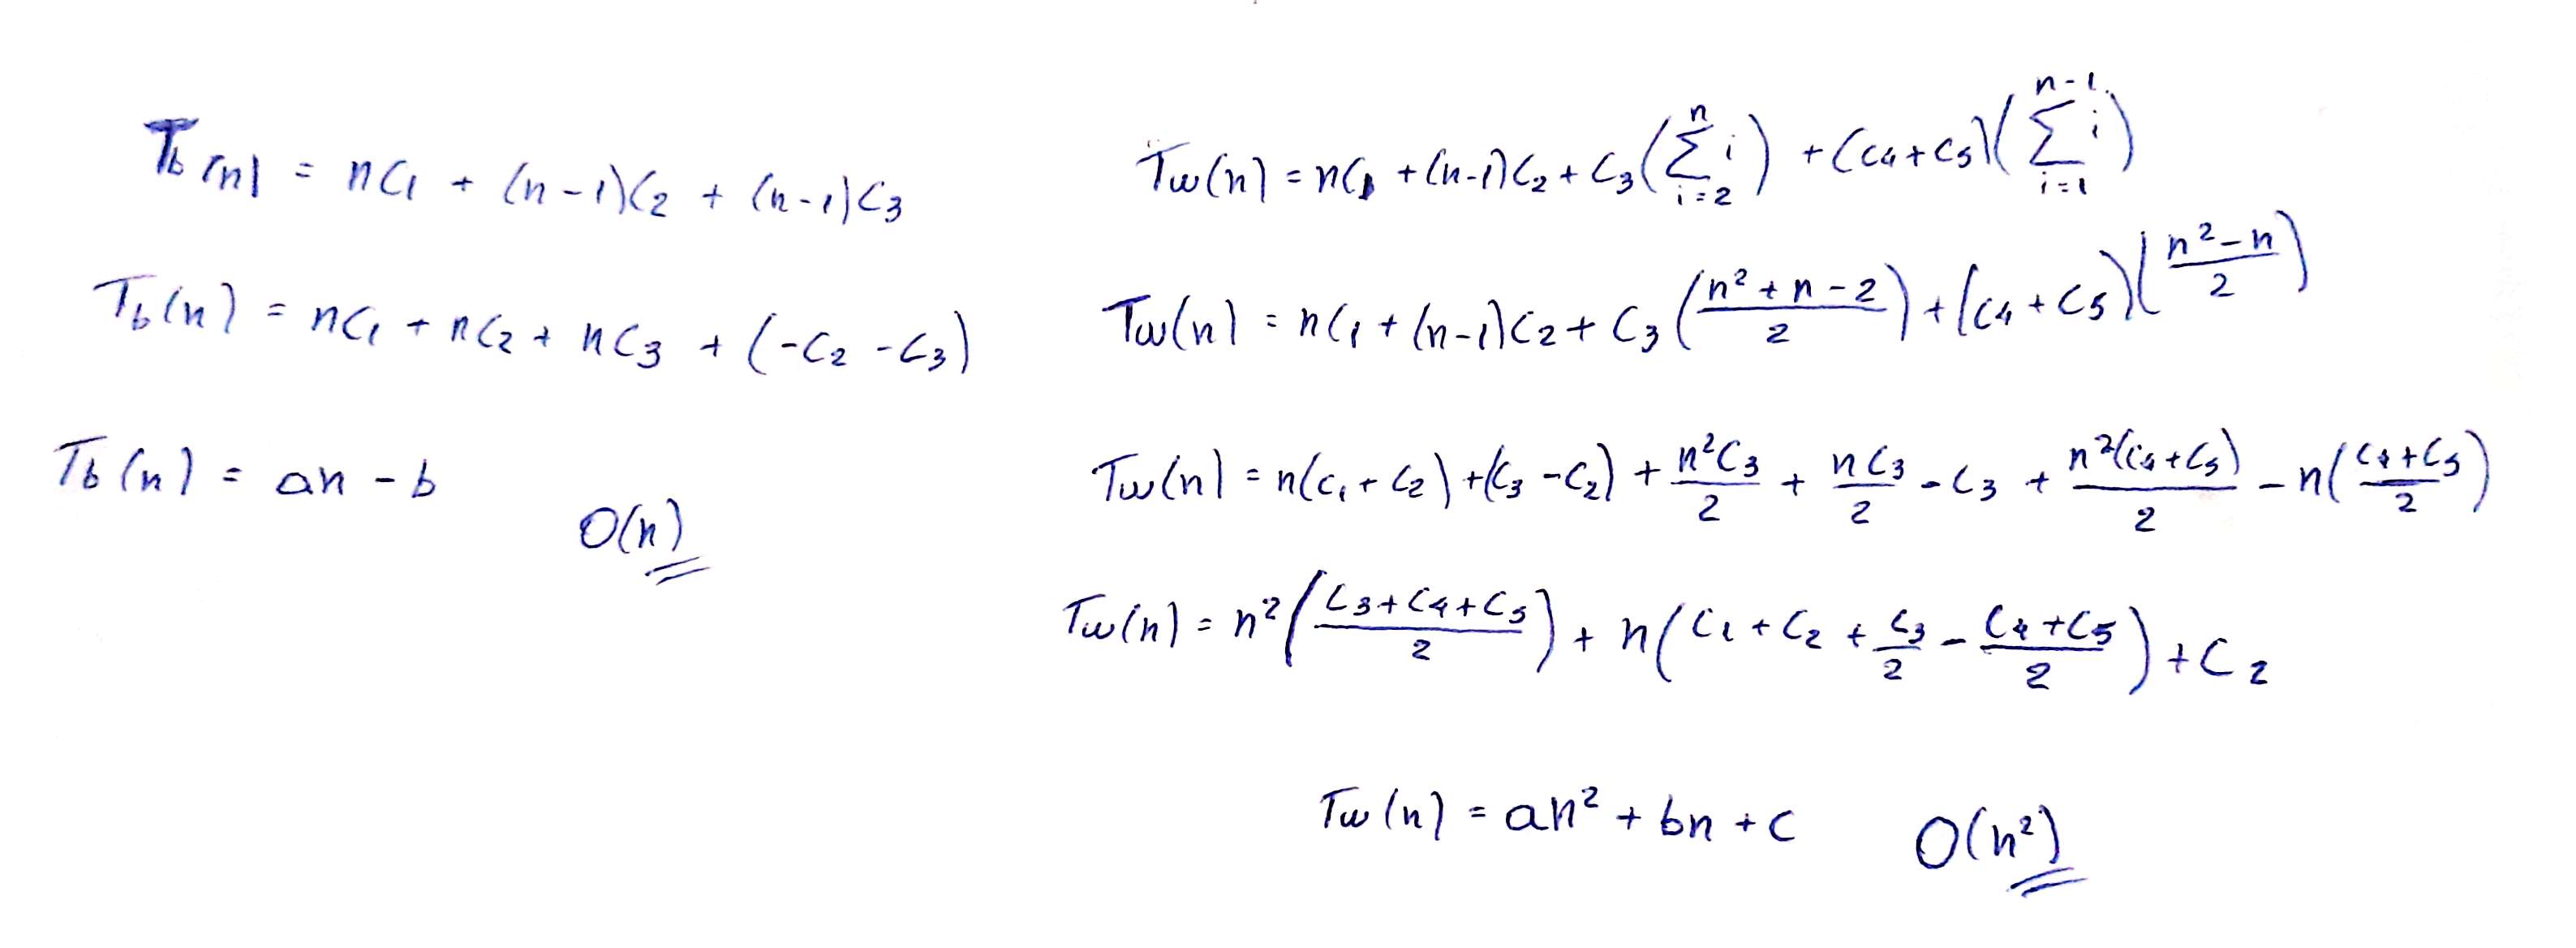 T_b(n) = nC₁ + (n-1)C₂ + (n-1)C₃
T_b(n) = nC₁ + nC₂ + nC₃ + (-C₂ -C₃)
T_b(n) = an - b
O(n)
T_w(n) = nC₁ + (n-1)C₂ + C₃(∑_{i=2}^{n} i) + (C₄+C₅)(∑_{i=1}^{n-1} i)
T_w(n) = nC₁ + (n-1)C₂ + C₃((n²+n-2)/2) + (C₄+C₅)((n²-n)/2)
T_w(n) = n(C₁+C₂) + (C₃-C₂) + n²C₃/2 + nC₃/2 - C₃ + n²(C₄+C₅)/2 - n((C₄+C₅)/2)
T_w(n) = n²((C₃+C₄+C₅)/2) + n(C₁+C₂+C₃/2 - (C₄+C₅)/2) + C₂
T_w(n) = an² + bn + c
O(n²)